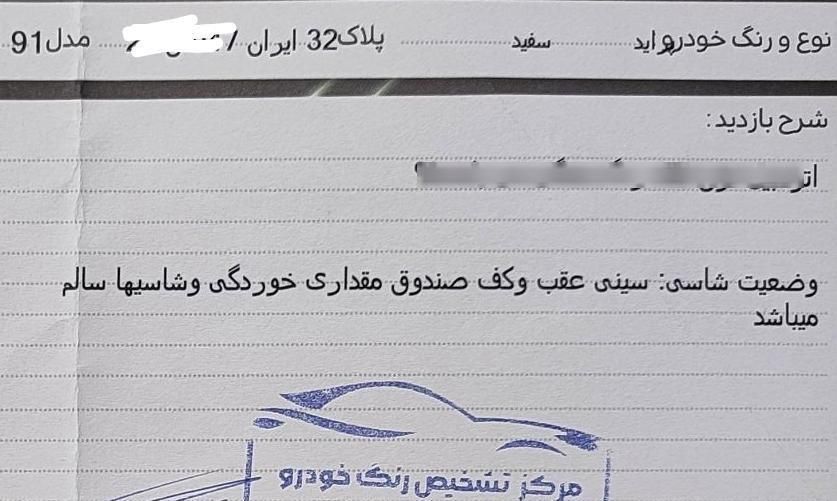 نوع و رنگ خودرو پراید سفید پلاک32 ایران مدل91
شرح بازدید:
وضعیت شاسی: سینی عقب وکف صندوق مقداری خوردگی وشاسیها سالم
میباشد
مرکز تشخیص رنگ خودرو